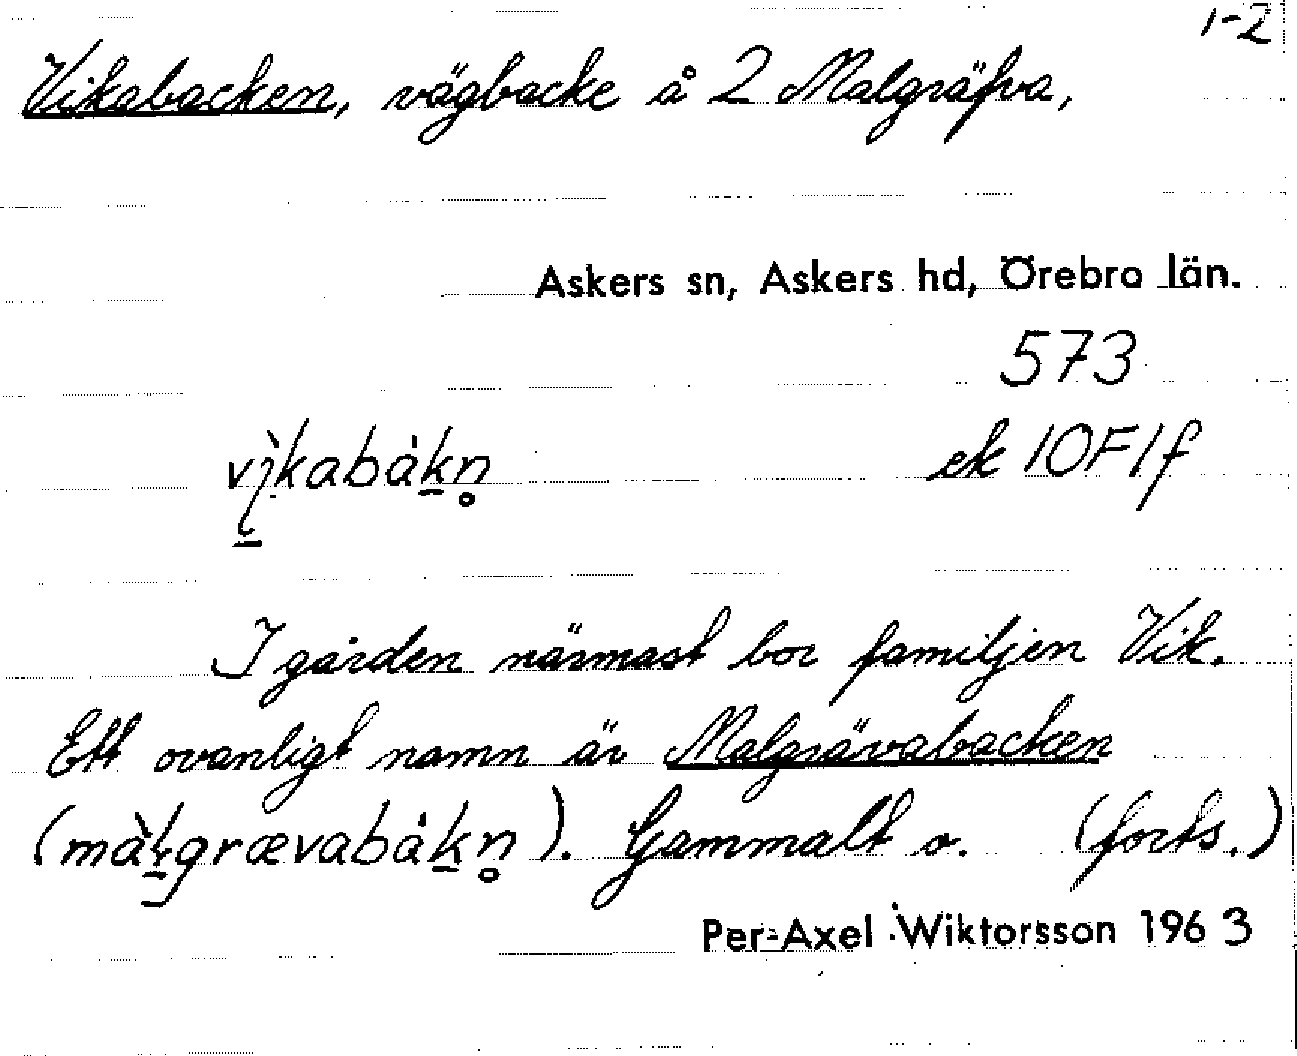 1-2
Vikabacken, vägbacke å 2 Malgräfva,
Askers sn, Askers hd, Örebro län.
573
vì̱kabàk̠n̥ ek 10F1f
I gården närmast bor familjen Vik.
Ett ovanligt namn är Malgrävabacken
(màl̠grævabàk̠n̥). Gammalt o. (forts.)
Per-Axel Wiktorsson 1963